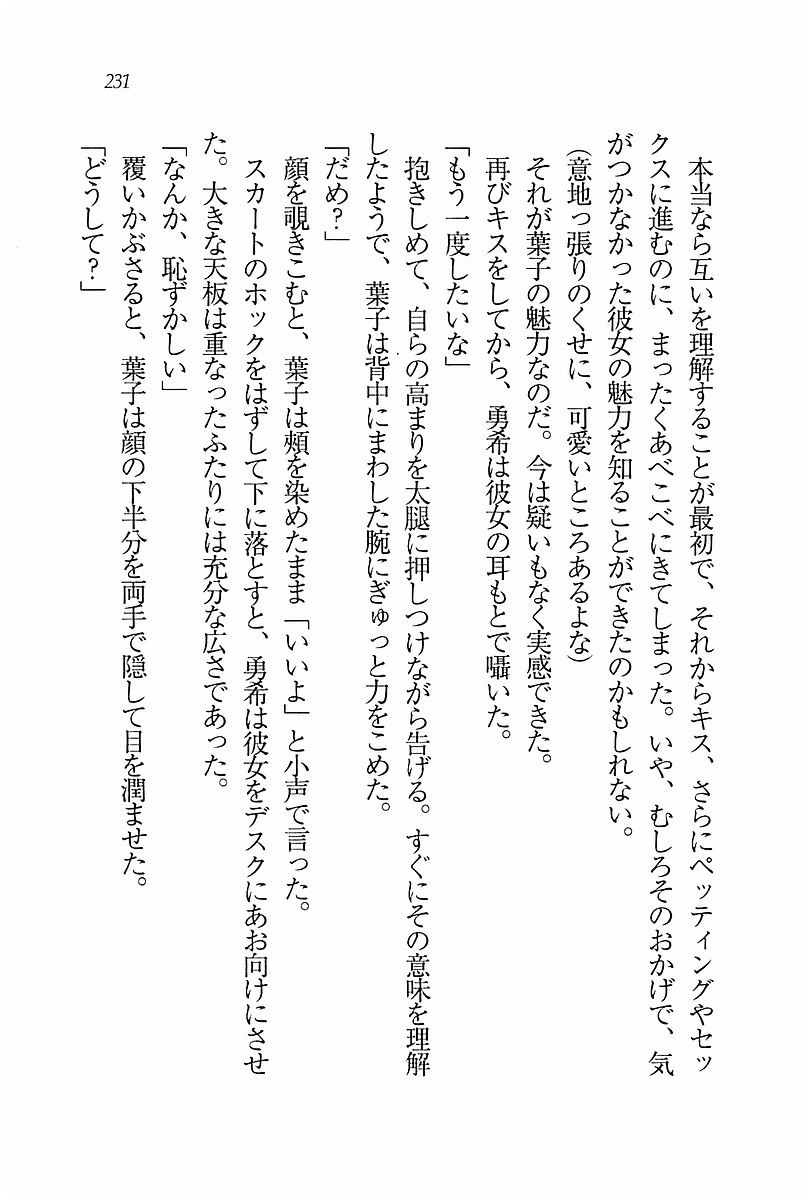 231
本当なら互いを理解することが最初で、それからキス、さらにペッティングやセッ
クスに進むのに、まったくあべこべにきてしまった。いや、むしろそのおかげで、気
がつかなかった彼女の魅力を知ることができたのかもしれない。
（意地っ張りのくせに、可愛いところあるよな）
それが葉子の魅力なのだ。今は疑いもなく実感できた。
再びキスをしてから、勇希は彼女の耳もとで囁いた。
「もう一度したいな」
抱きしめて、自らの高まりを太腿に押しつけながら告げる。すぐにその意味を理解
したようで、葉子は背中にまわした腕にぎゅっと力をこめた。
「だめ？」
顔を覗きこむと、葉子は頰を染めたまま「いいよ」と小声で言った。
スカートのホックをはずして下に落とすと、勇希は彼女をデスクにあお向けにさせ
た。大きな天板は重なったふたりには充分な広さであった。
「なんか、恥ずかしい」
覆いかぶさると、葉子は顔の下半分を両手で隠して目を潤ませた。
「どうして？」